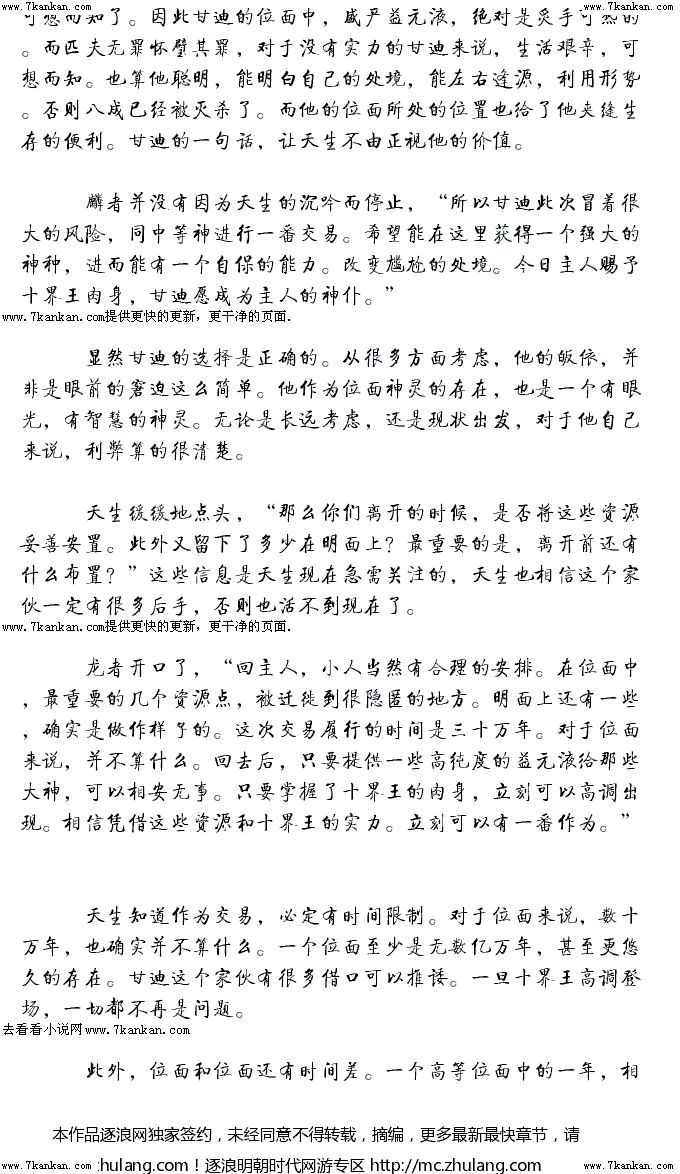 www.7kankan.com www.7kankan.com
可想而知了。因此甘迪的位面中，盛产益元液，绝对是炙手可热的
。而匹夫无罪怀璧其罪，对于没有实力的甘迪来说，生活艰辛，可
想而知。也算他聪明，能明白自己的处境，能左右逢源，利用形势
。否则八成已经被灭杀了。而他的位面所处的位置也给了他夹缝生
存的便利。甘迪的一句话，让天生不由正视他的价值。
麟者并没有因为天生的沉吟而停止，“所以甘迪此次冒着很
大的风险，同中等神进行一番交易。希望能在这里获得一个强大的
神种，进而能有一个自保的能力。改变尴尬的处境。今日主人赐予
十界王肉身，甘迪愿成为主人的神仆。”
www.7kankan.com提供更快的更新，更干净的页面.
显然甘迪的选择是正确的。从很多方面考虑，他的皈依，并
非是眼前的窘迫这么简单。他作为位面神灵的存在，也是一个有眼
光，有智慧的神灵。无论是长远考虑，还是现状出发，对于他自己
来说，利弊算的很清楚。
天生缓缓地点头，“那么你们离开的时候，是否将这些资源
妥善安置。此外又留下了多少在明面上？最重要的是，离开前还有
什么布置？”这些信息是天生现在急需关注的，天生也相信这个家
伙一定有很多后手，否则也活不到现在了。
www.7kankan.com提供更快的更新，更干净的页面.
龙者开口了，“回主人，小人当然有合理的安排。在位面中
，最重要的几个资源点，被迁徙到很隐匿的地方。明面上还有一些
，确实是做作样子的。这次交易履行的时间是三十万年。对于位面
来说，并不算什么。回去后，只要提供一些高纯度的益元液给那些
大神，可以相安无事。只要掌握了十界王的肉身，立刻可以高调出
现。相信凭借这些资源和十界王的实力。立刻可以有一番作为。”
天生知道作为交易，必定有时间限制。对于位面来说，数十
万年，也确实并不算什么。一个位面至少是无数亿万年，甚至更悠
久的存在。甘迪这个家伙有很多借口可以推诿。一旦十界王高调登
场，一切都不再是问题。
去看看小说网www.7kankan.com
此外，位面和位面还有时间差。一个高等位面中的一年，相
本作品逐浪网独家签约，未经同意不得转载，摘编，更多最新最快章节，请
www.7kankan.com zhulang.com！逐浪明朝时代网游专区 http://mc.zhulang.com www.7kankan.com